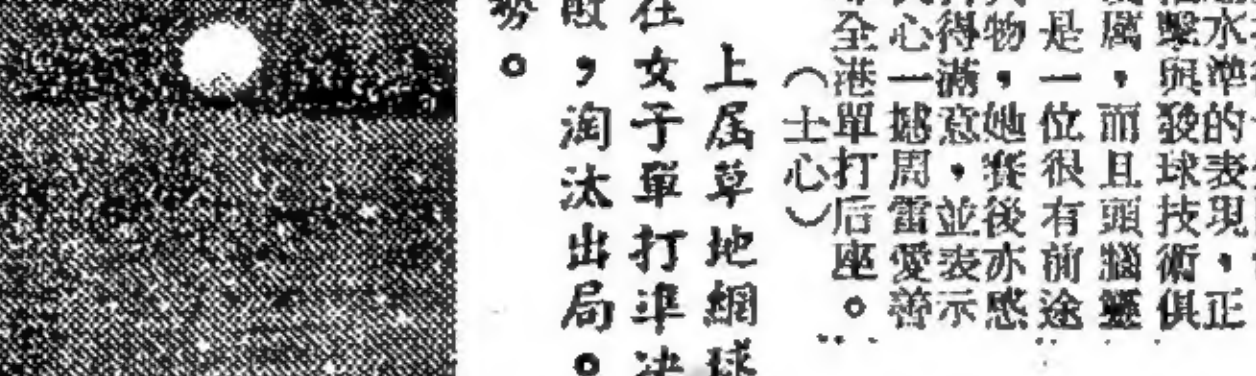 水準的表現，正
擊與發球技術俱
厲，而且頭腦靈
是一位很有前途
物，她賽後亦感
得滿意，並表示
心一撼周雷愛善
全港單打后座。
（士心）
上屆草地網球
在女子單打準决
敗，淘汰出局。
勞。